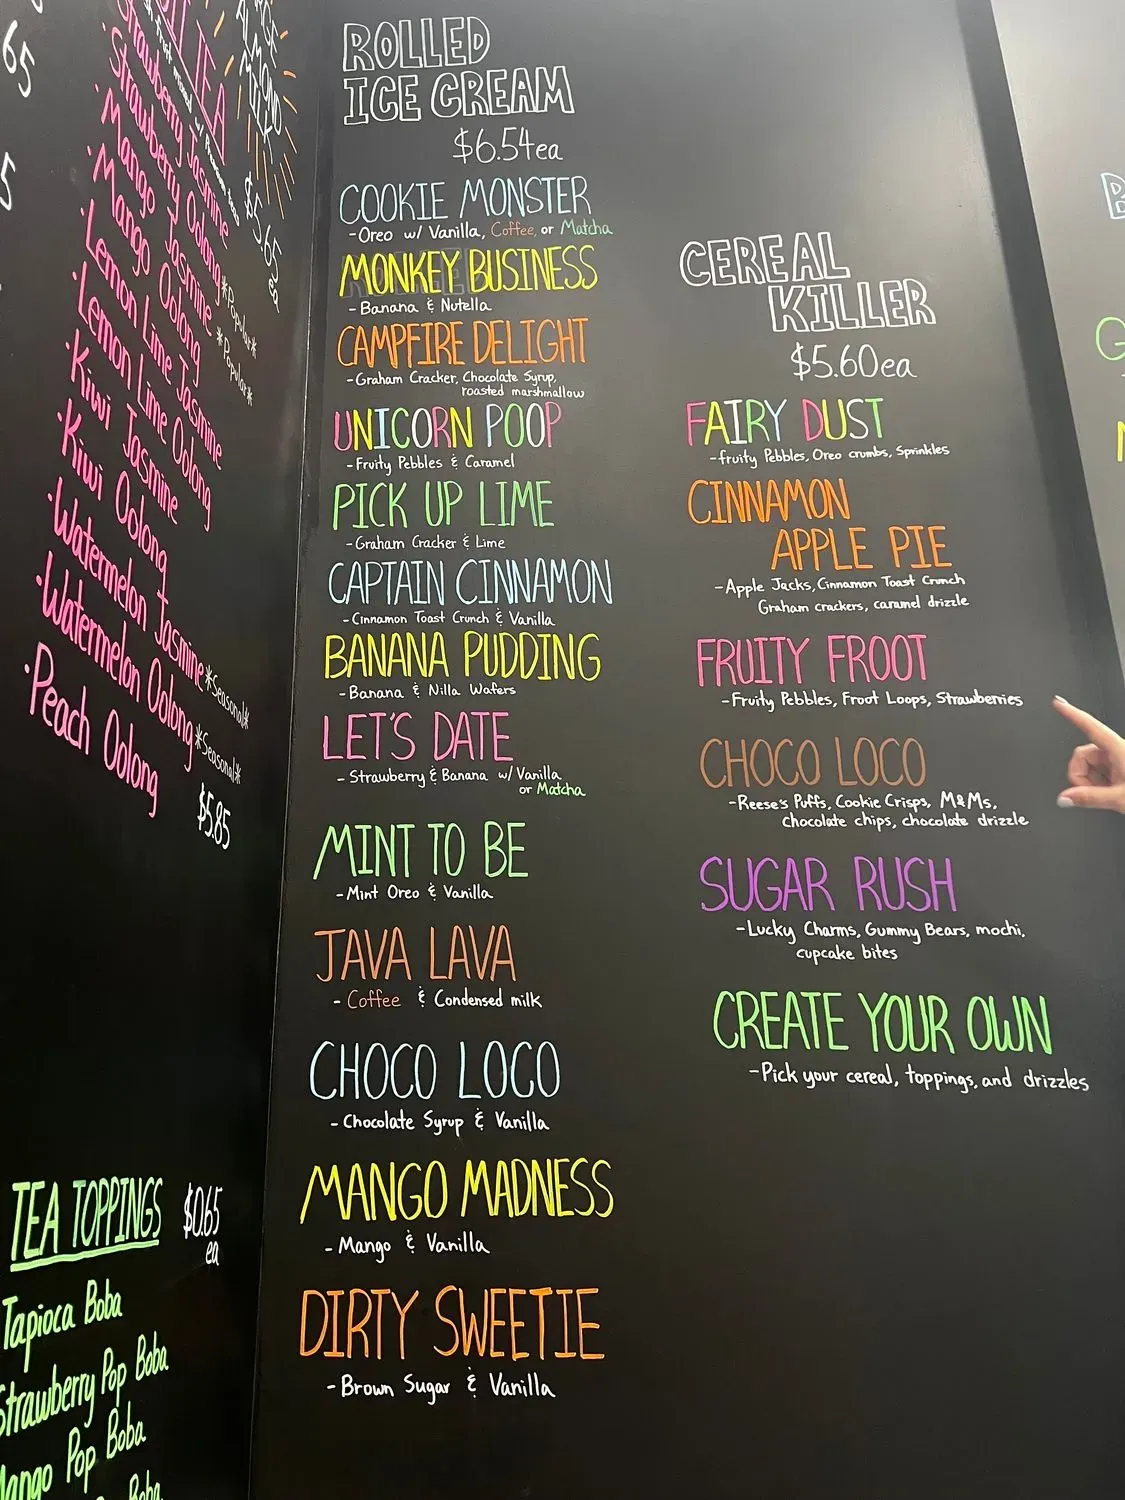 TEA
w/ Premium teas
Strawberry Jasmine
Strawberry Oolong *Popular*
Mango Jasmine *Popular*
·Mango Oolong
·Lemon Lime Jasmine
·Lemon Lime Oolong
·Kiwi Jasmine
·Kiwi Oolong
·Watermelon Jasmine *Seasonal*
·Watermelon Oolong *Seasonal*
·Peach Oolong
$5.85
ALMOND
MILK
$5.65
ea
65
5
TEA TOPPINGS $0.65
ea
Tapioca Boba
Strawberry Pop Boba
Mango Pop Boba
Boba
ROLLED
ICE CREAM
$6.54ea
COOKIE MONSTER
-Oreo w/ Vanilla, Coffee, or Matcha
MONKEY BUSINESS
- Banana & Nutella
CAMPFIRE DELIGHT
-Graham Cracker, Chocolate Syrup,
roasted marshmallow
UNICORN POOP
-Fruity Pebbles & Caramel
PICK UP LIME
-Graham Cracker & Lime
CAPTAIN CINNAMON
-Cinnamon Toast Crunch & Vanilla
BANANA PUDDING
-Banana & Nilla Wafers
LET'S DATE
- Strawberry & Banana w/ Vanilla
or Matcha
MINT TO BE
-Mint Oreo & Vanilla
JAVA LAVA
- Coffee & Condensed milk
CHOCO LOCO
- Chocolate Syrup & Vanilla
MANGO MADNESS
- Mango & Vanilla
DIRTY SWEETIE
- Brown Sugar & Vanilla
CEREAL
KILLER
$5.60ea
FAIRY DUST
-fruity Pebbles, Oreo crumbs, Sprinkles
CINNAMON
APPLE PIE
-Apple Jacks, Cinnamon Toast Crunch
Graham crackers, caramel drizzle
FRUITY FROOT
-Fruity Pebbles, Froot Loops, Strawberries
CHOCO LOCO
-Reese's Puffs, Cookie Crisps, M&Ms,
chocolate chips, chocolate drizzle
SUGAR RUSH
-Lucky Charms, Gummy Bears, mochi,
cupcake bites
CREATE YOUR OWN
-Pick your cereal, toppings, and drizzles